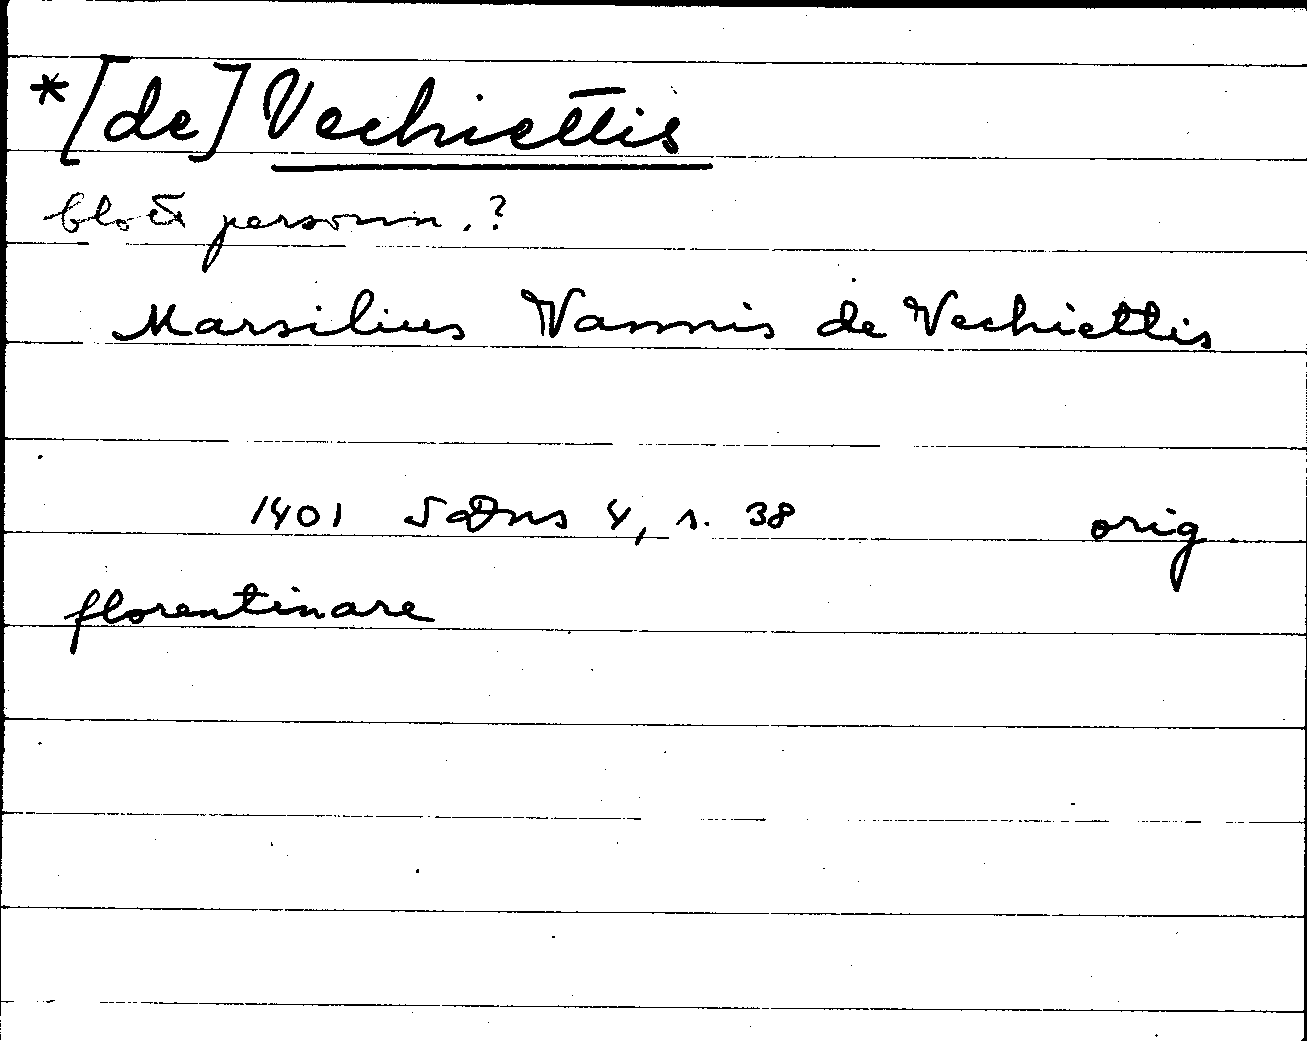 *[de] Vechiettis
blott personn.?
Marsilius Vannis de Vechiettis
1401 SDns 4, s. 38 orig.
florentinare